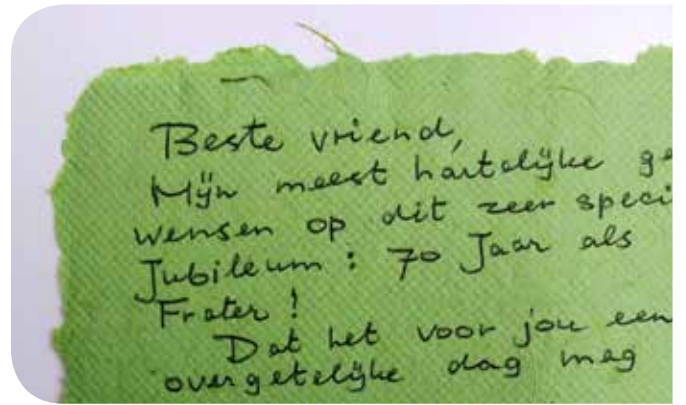 Beste vriend,
Mijn meest hartelijke ge
wensen op dit zeer speci
Jubileum : 70 Jaar als
Frater !
Dat het voor jou een
overgetelijke dag mag